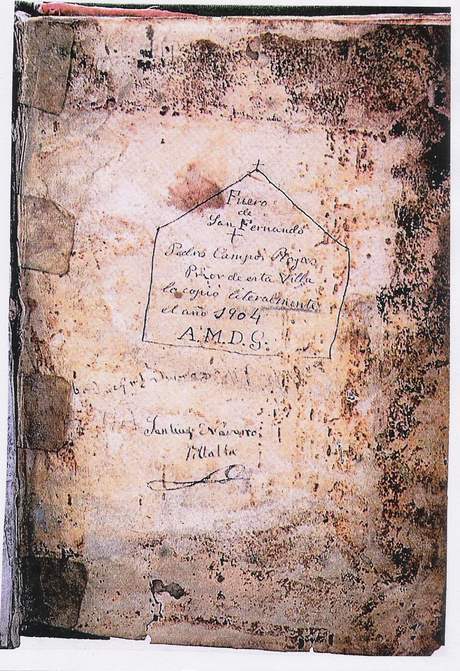 Fuero
de
San Fernando
Pedro Campos Rojas
Prior de esta Villa
lo copió literalmente
el año 1904
A.M.D.G.
Santiago Navarro
Villalta